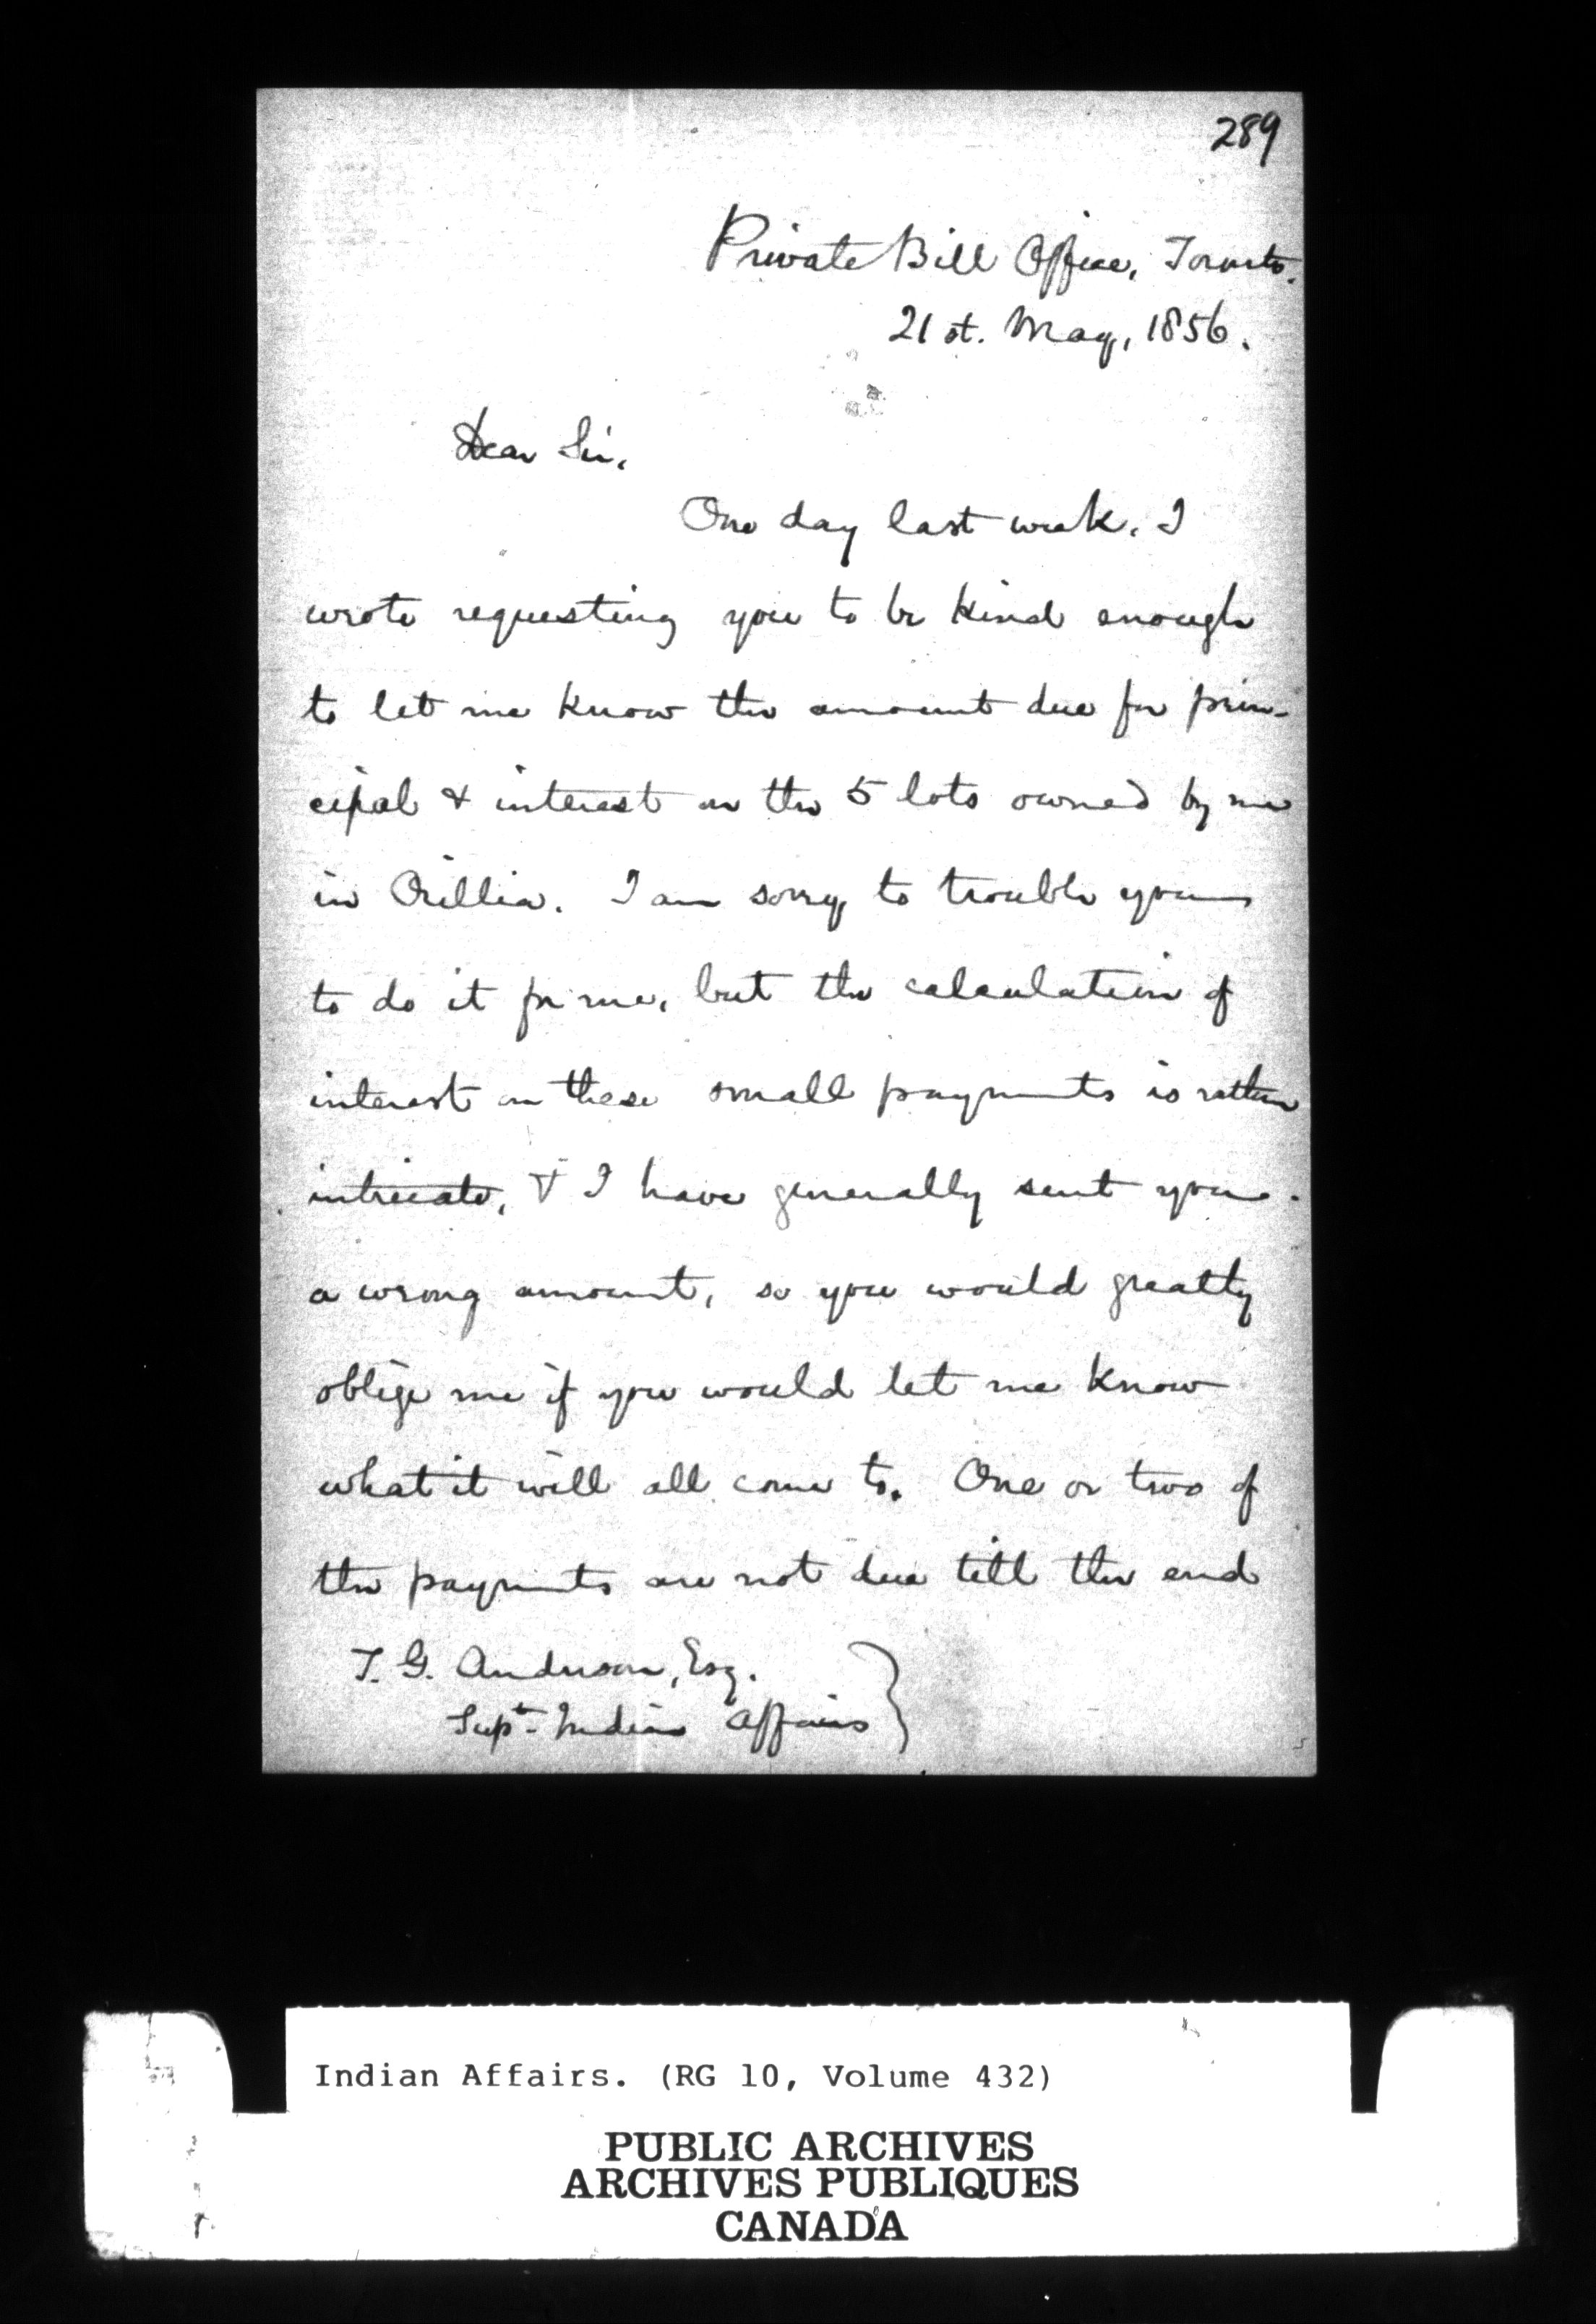 289
Private Bill Office, Toronto.
21st. May, 1856.
Dear Sir,
One day last week, I
wrote requesting you to be kind enough
to let me know the amount due for prin-
cipal & interest on the 5 lots owned by me
in Orillia. I am sorry to trouble you
to do it for me, but the calculation of
interest on these small payments is rather
intricate, & I have generally sent you
a wrong amount, so you would greatly
oblige me if you would let me know
what it will all come to. One or two of
the payments are not due till the end
T. G. Anderson, Esq.
Supt. Indian Affairs
Indian Affairs. (RG 10, Volume 432)
PUBLIC ARCHIVES
ARCHIVES PUBLIQUES
CANADA